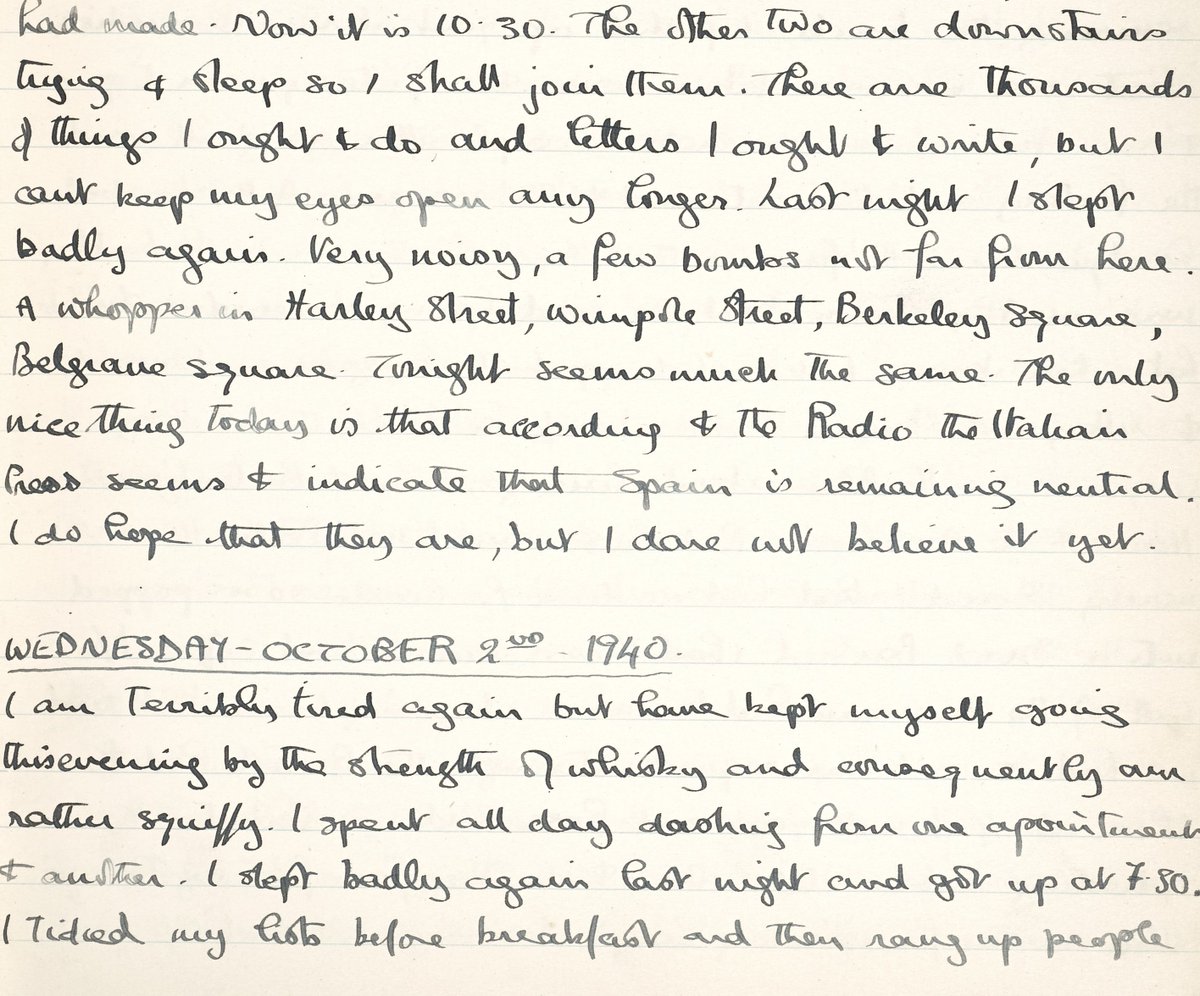 had made. Now it is 10.30. The other two are downstairs
trying to sleep so I shall join them. There are thousands
of things I ought to do, and letters I ought to write, but I
cant keep my eyes open any longer. Last night I slept
badly again. Very noisy, a few bombs not far from here.
A whopper in Harley Street, Wimpole Street, Berkeley Square,
Belgrave square. Tonight seems much the same. The only
nice thing today is that according to the Radio the Italian
Press seems to indicate that Spain is remaining neutral.
I do hope that they are, but I dare not believe it yet.
WEDNESDAY - OCTOBER 2ND. 1940.
I am Terribly tired again but have kept myself going
this evening by the strength of whisky and consequently am
rather squiffy. I spent all day dashing from one apointment
to another. I slept badly again last night and got up at 7.30.
I Tidied my lists before breakfast and then rang up people